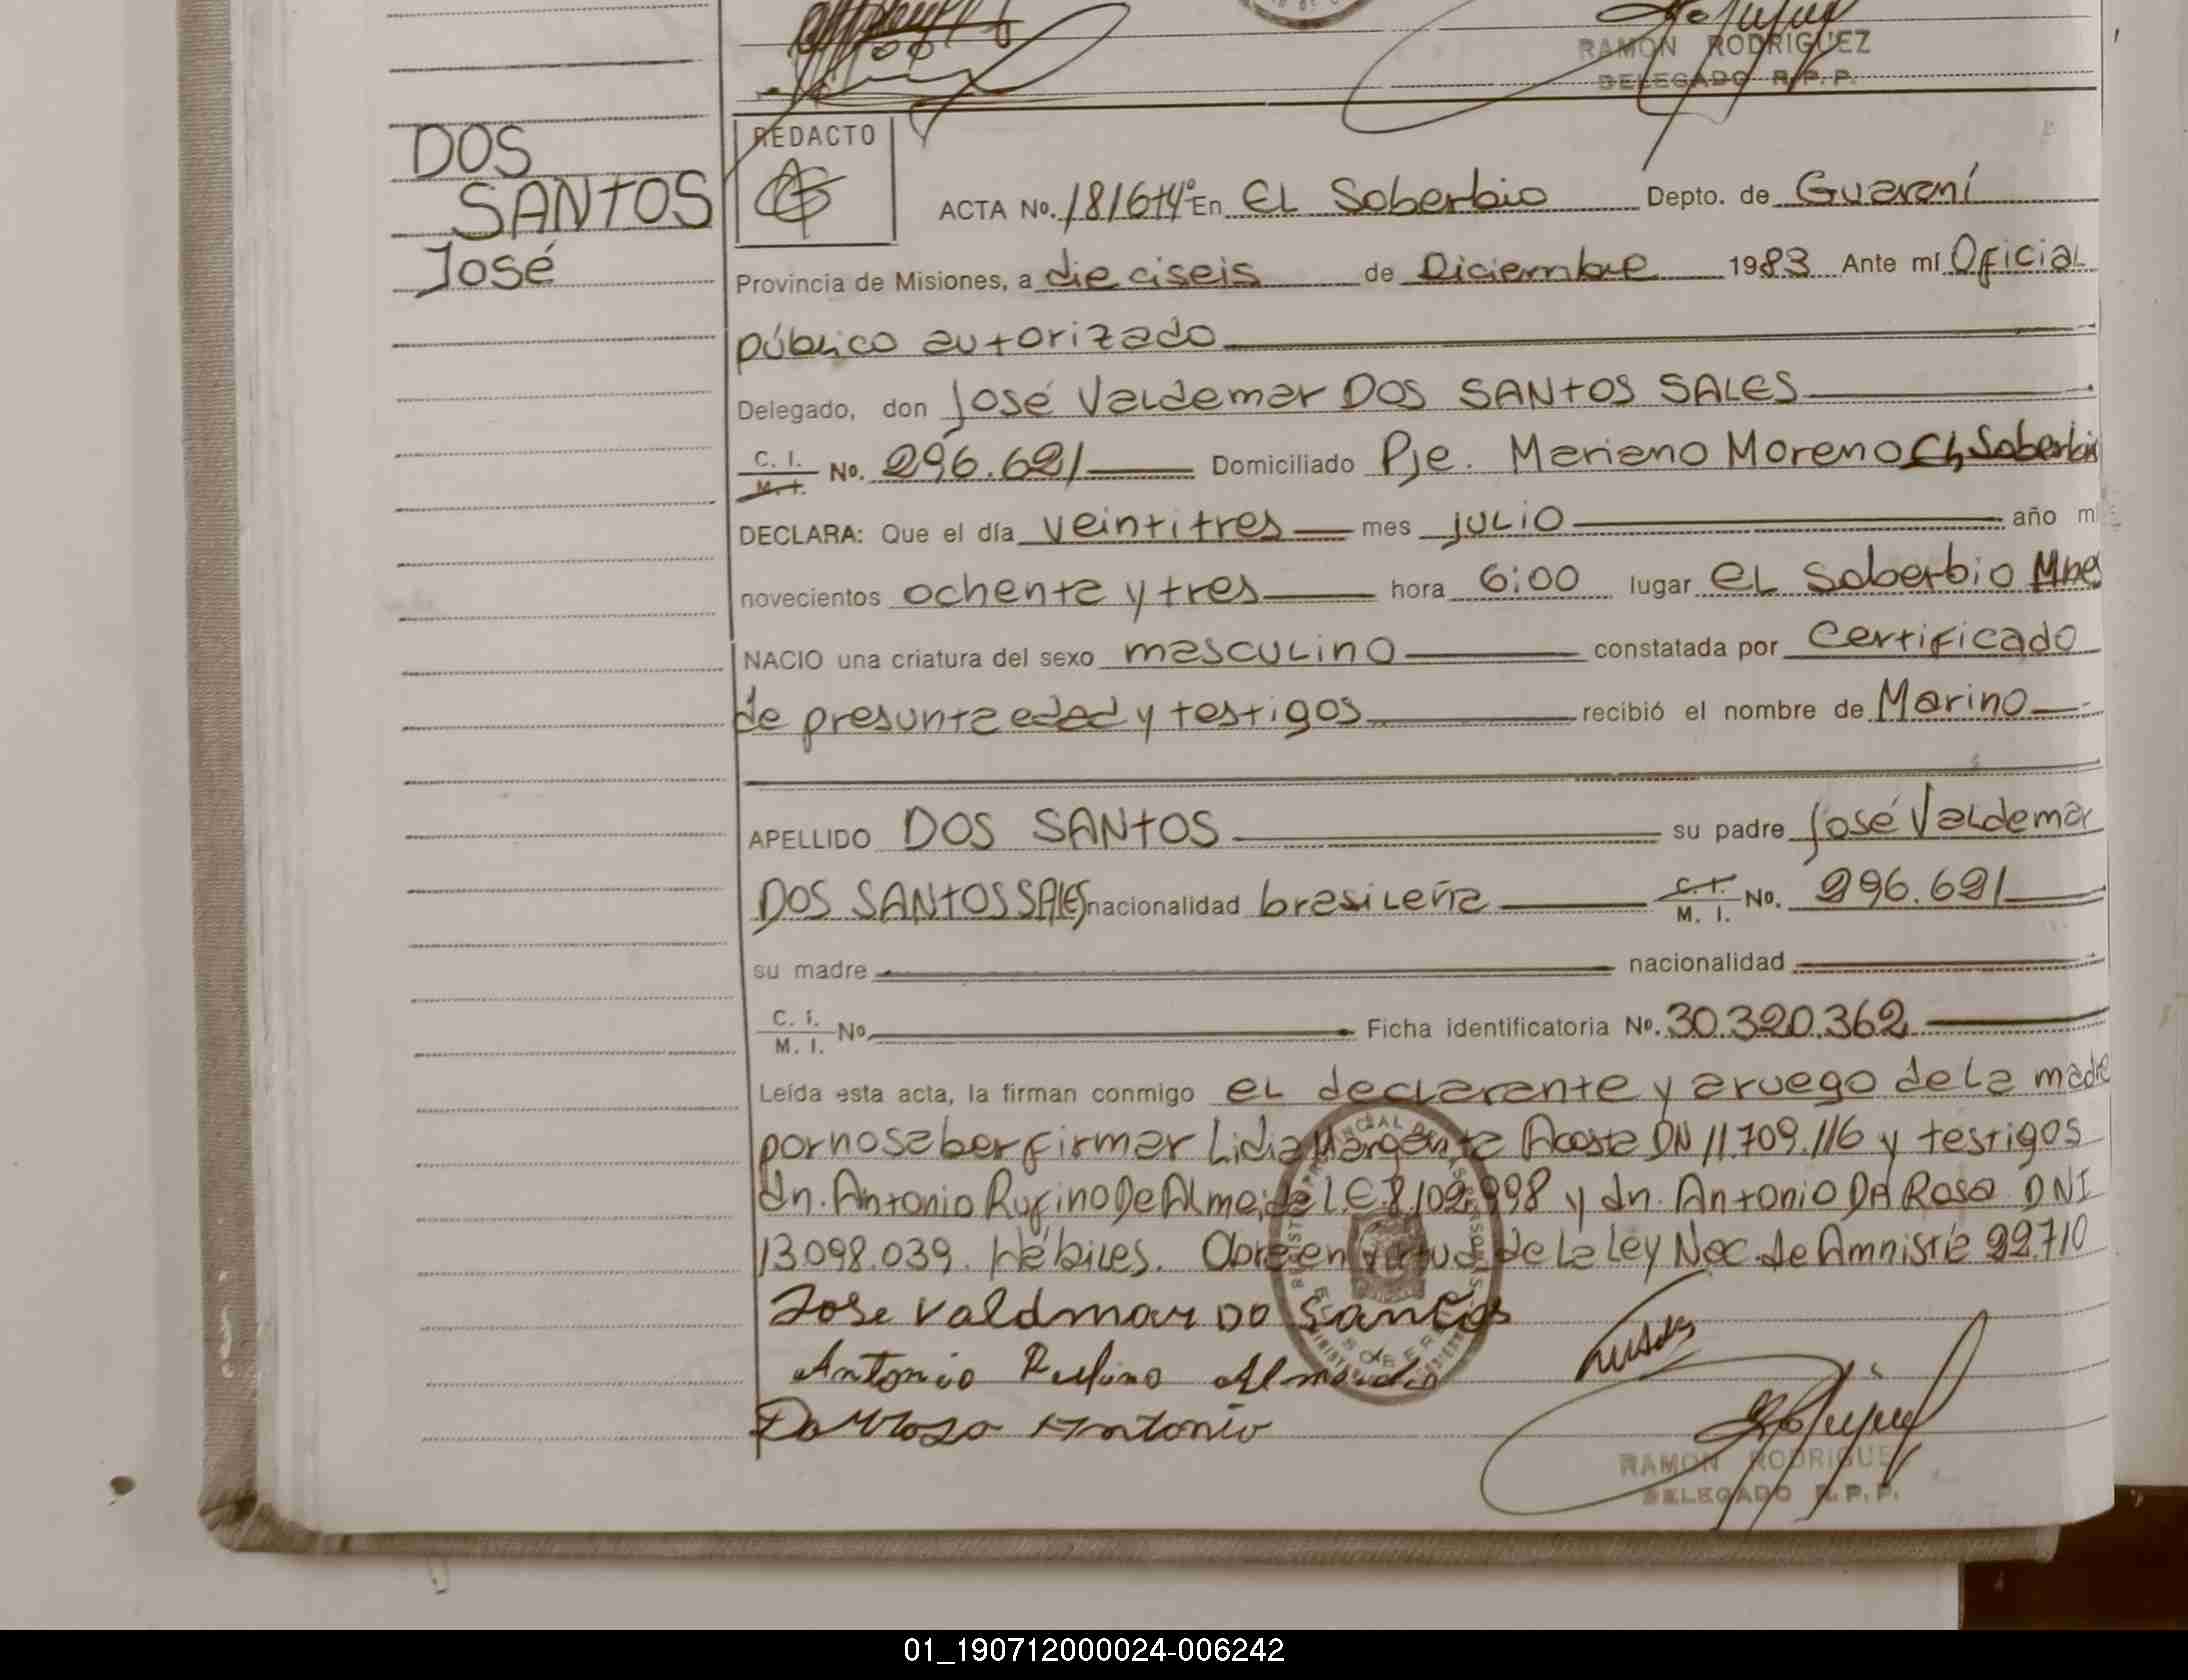 RAMON RODRIGUEZ
DELEGADO R.P.P.
DOS
SANTOS
José
REDACTO
ACTA No. 1816 t4º En EL Soberbio Depto. de Guaraní
Provincia de Misiones, a dieciseis de Diciembre 1983 Ante mí Oficial
público autorizado
Delegado, don José Valdemar DOS SANTOS SALES
C. I. M. I. No. 296.621 Domiciliado Pje. Mariano Moreno Ch, Soberbio
DECLARA: Que el día veintitres mes julio año mi
novecientos ochenta y tres hora 6:00 lugar EL Soberbio Mnes
NACIO una criatura del sexo masculino constatada por Certificado
de presunta edad y testigos recibió el nombre de Marino
APELLIDO DOS SANTOS su padre José Valdemar
DOS SANTOS SALES nacionalidad brasileña C. I. M. I. No. 296.621
su madre nacionalidad
C. I. M. I. No. Ficha identificatoria No. 30.320.362
Leída esta acta, la firman conmigo el declarante y a ruego de la madre
por no saber firmar Lidia Margarita Acosta DN 11.709.116 y testigos
dn. Antonio Rufino De Almeida L.E 8.102.998 y dn. Antonio DA Rosa DNI
13.098.039. Hábiles. Obre en virtud de la Ley Nac. de Amnistía 22.710
Jose valdmar DO Santos
Antonio Rufino Almeida
Da Rosa Antonio
RAMON RODRIGUE
DELEGADO R.P.P.
01_190712000024-006242